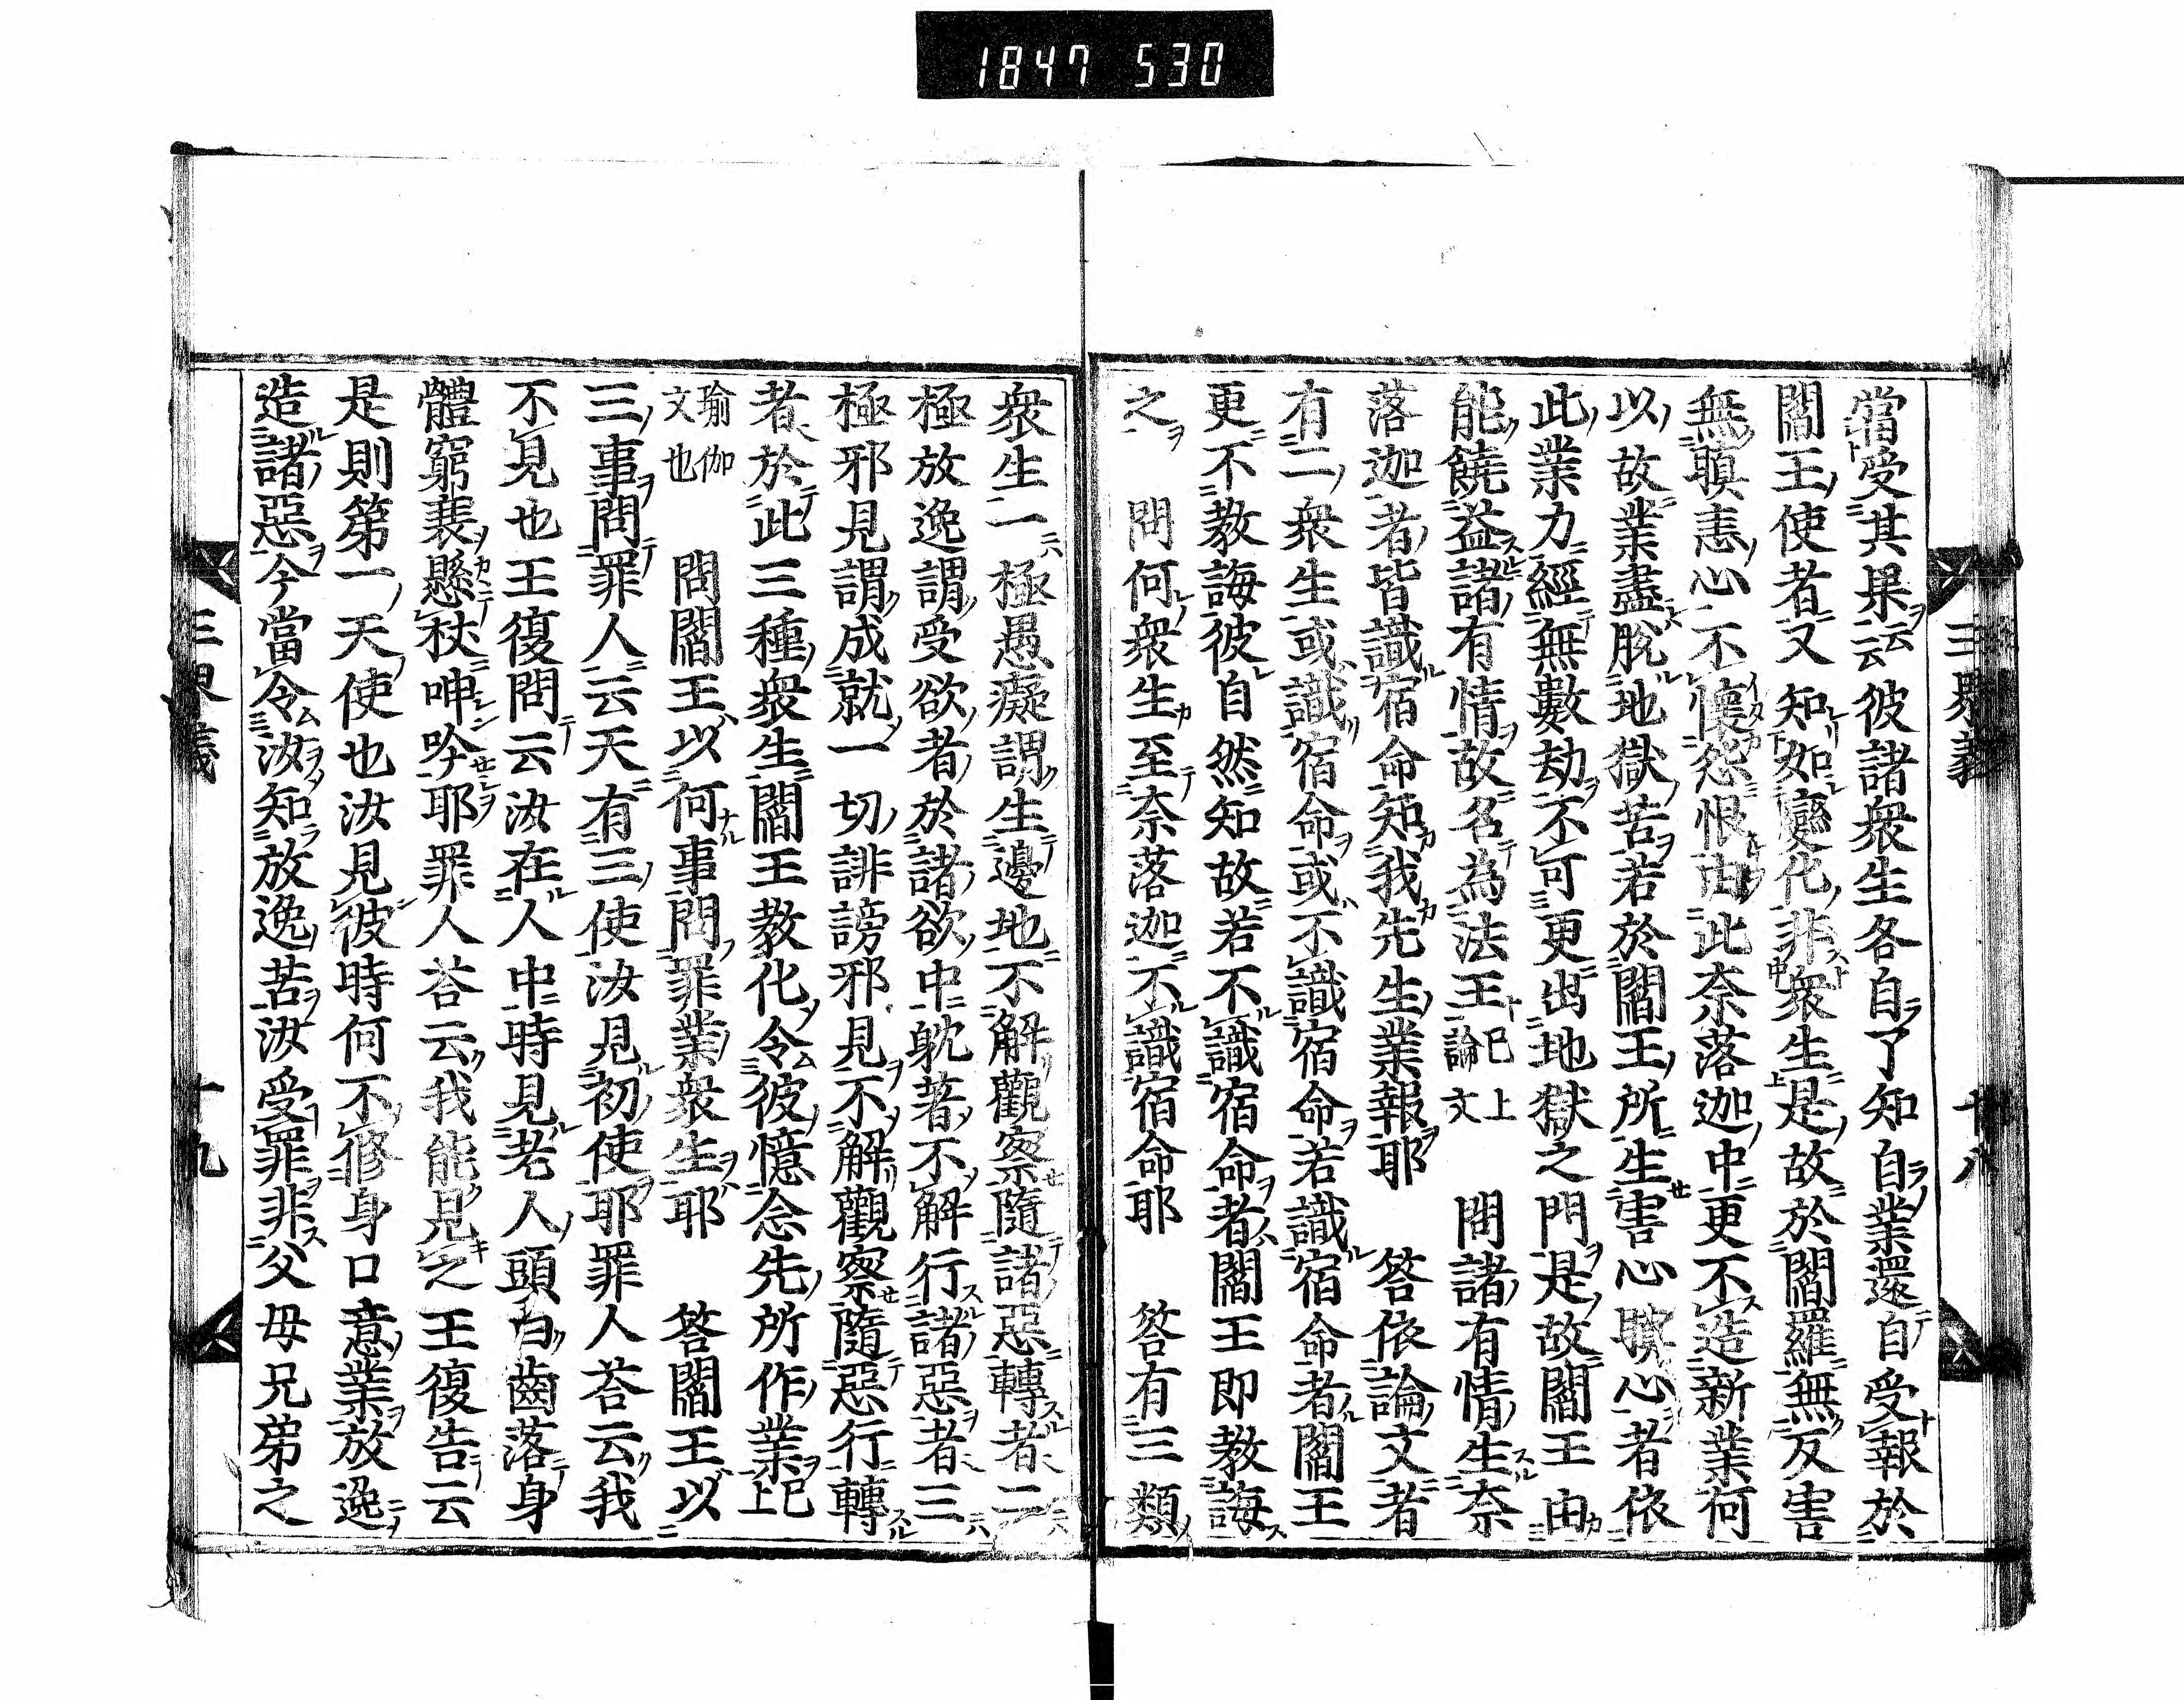 1847 530
三界義
十八
當受其果云云彼諸衆生各自了知自業還自受報於
閻王使者又知如變化非衆生是故於閻羅無反害
無瞋恚心不懷怨恨由此奈落迦中更不造新業何
以故業盡脫地獄苦若於閻王所生害心瞋心者依
此業力經無數劫不可更出地獄之門是故閻王由
能饒益諸有情故名為法王已上論文 問諸有情生奈
落迦者皆識宿命知我先生業報耶 答依論文者
有二衆生或識宿命或不識宿命若識宿命者閻王
更不教誨彼自然知故若不識宿命者閻王即教誨
之 問何衆生至奈落迦不識宿命耶 答有三類
衆生一極愚癡謂生邊地不解觀察隨諸惡轉者二
極放逸謂受欲者於諸欲中躭著不解行諸惡者三
極邪見謂成就一切誹謗邪見不解觀察隨惡行轉
者於此三種衆生閻王教化令彼憶念先所作業已上
瑜伽文也 問閻王以何事問罪業衆生耶 答閻王以
三事問罪人云天有三使汝見初使耶罪人荅云我
不見也王復問云汝在人中時見老人頭白齒落身
體窮裹懸杖呻吟耶罪人荅云我能見之王復告云
是則第一天使也汝見彼時何不修身口意業放逸
造諸惡今當令汝知放逸苦汝受罪非父母兄弟之
三界義
十九